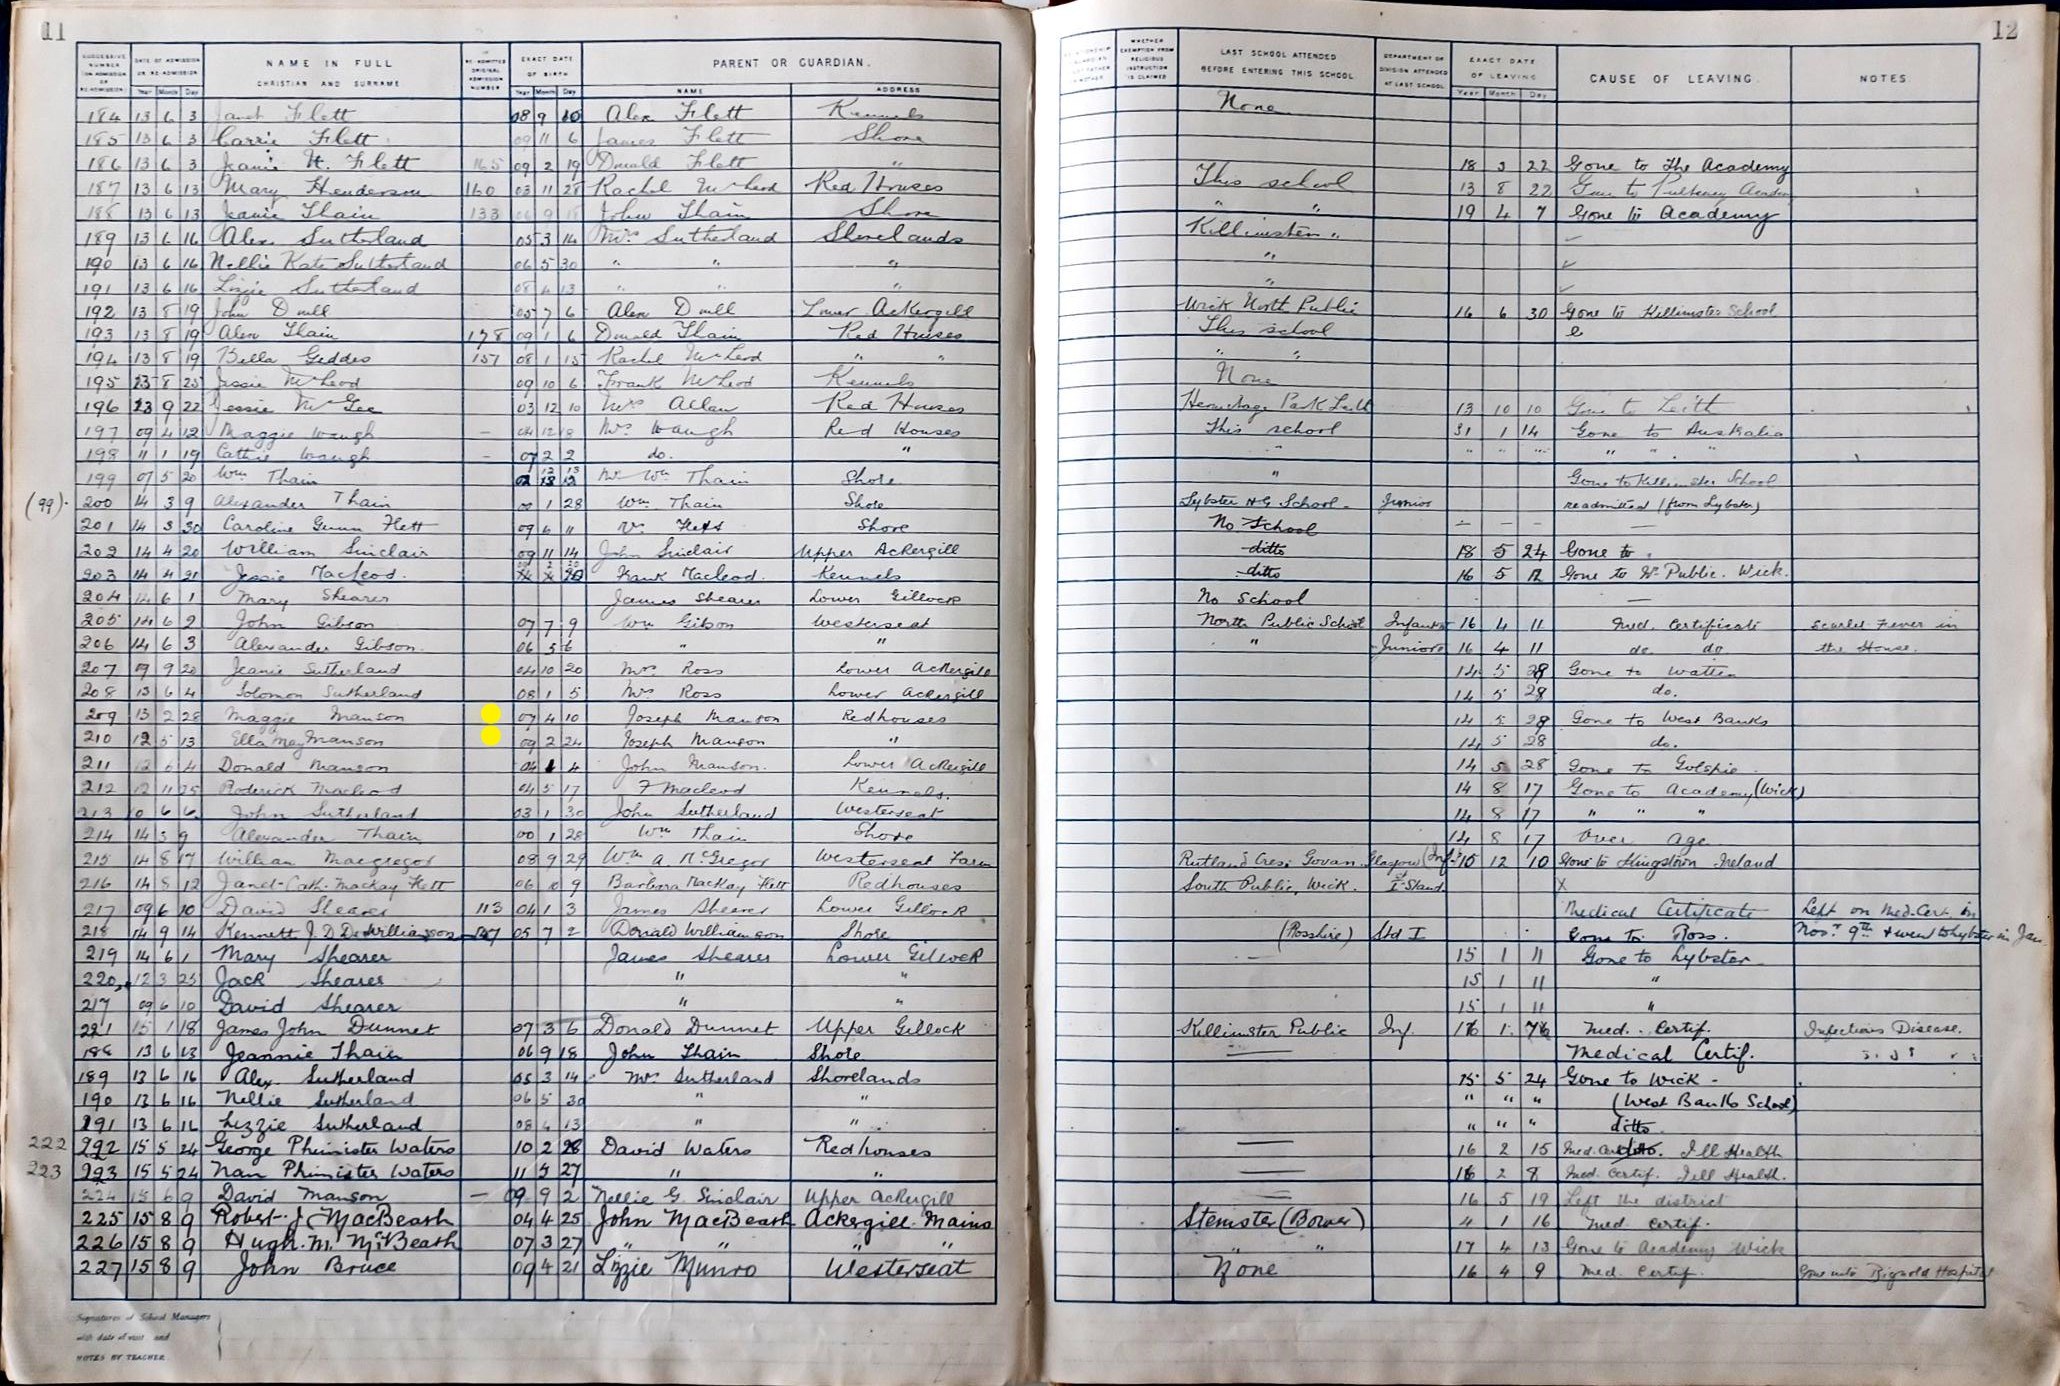 11
SUCCESSIVE NUMBER ON ADMISSION OR RE-ADMISSION DATE OF ADMISSION OR RE-ADMISSION Year Month Day NAME IN FULL CHRISTIAN AND SURNAME RE-ADMITTED ORIGINAL ADMISSION NUMBER EXACT DATE OF BIRTH Year Month Day PARENT OR GUARDIAN. NAME ADDRESS
184 13 6 3 Janet Flett 08 9 10 Alex Flett Kennels
185 13 6 3 Carrie Flett 09 11 6 James Flett Shore
186 13 6 3 Jeanie W. Flett 165 09 2 19 Donald Flett "
187 13 6 13 Mary Henderson 160 03 11 28 Rachel McLeod Red Houses
188 13 6 13 Jeanie Thain 133 06 9 18 John Thain Shore
189 13 6 16 Alex Sutherland 05 3 14 Mrs Sutherland Shorelands
190 13 6 16 Nellie Kate Sutherland 06 5 30 " " "
191 13 6 16 Lizzie Sutherland 08 4 13 " " "
192 13 8 19 John Doull 05 7 6 Alex Doull Lower Ackergill
193 13 8 19 Alex Thain 178 09 1 6 Donald Thain Red Houses
194 13 8 19 Bella Geddes 157 08 1 15 Rachel McLeod " "
195 13 8 25 Jessie McLeod 09 10 6 Frank McLeod Kennels
196 13 9 22 Jessie McGee 03 12 10 Mrs Allan Red Houses
197 09 4 12 Maggie Waugh – 04 12 18 Mrs Waugh Red Houses
198 11 1 19 Cathie Waugh – 07 2 2 do. "
199 07 5 20 Wm Thain 02 12 13 Mr Wm Thain Shore
(99). 200 14 3 9 Alexander Thain 00 1 28 Wm Thain Shore
201 14 3 30 Caroline Gunn Flett 09 6 11 Shore
202 14 4 20 William Sinclair 09 11 14 John Sinclair Upper Ackergill
203 14 4 21 Jessie MacLeod. 20 Frank Macleod. Kennels
204 14 6 1 Mary Shearer James Shearer Lower Gillock
205 14 6 2 John Gibson 07 7 9 Wm Gibson Westerseat
206 14 6 3 Alexander Gibson. 06 5 6 " "
207 09 9 20 Jeanie Sutherland 04 10 20 Mrs Ross Lower Ackergill
208 13 6 4 Solomon Sutherland 08 1 5 Mrs Ross Lower Ackergill
209 13 2 28 Maggie Manson 07 4 10 Joseph Manson Redhouses
210 12 5 13 Ella May Manson 09 2 24 Joseph Manson "
211 12 6 4 Donald Manson 04 1 4 John Manson. Lower Ackergill
212 12 11 25 Roderick Macleod 04 5 17 F Macleod Kennels.
213 10 6 6 John Sutherland 03 1 30 John Sutherland Westerseat
214 14 3 9 Alexander Thain 00 1 28 Wm Thain Shore
215 14 8 17 William Macgregor 08 9 29 Wm A. McGregor Westerseat Farm
216 14 8 12 Janet-Cath. Mackay Flett 06 10 9 Barbara Mackay Flett Redhouses
217 09 6 10 David Shearer 113 04 1 3 James Shearer Lower Gillock
218 14 9 14 Kenneth J. D. D. Williamson 05 7 2 Donald Williamson Shore
219 14 6 1 Mary Shearer James Shearer Lower Gillock
220 12 3 25 Jack Shearer " "
217 09 6 10 David Shearer " "
221 15 1 18 James John Dunnet 07 3 6 Donald Dunnet Upper Gillock
188 13 6 13 Jeannie Thain 06 9 18 John Thain Shore
189 13 6 16 Alex. Sutherland 05 3 14 Mrs Sutherland Shorelands
190 13 6 16 Nellie Sutherland 06 5 30 " "
191 13 6 16 Lizzie Sutherland 08 4 13 " "
222 292 15 5 24 George Phimister Waters 10 2 28 David Waters Redhouses
223 293 15 5 24 Nan Phimister Waters 11 5 27 " "
224 15 6 9 David Manson – 09 9 2 Nellie G. Sinclair Upper Ackergill
225 15 8 9 Robert J. MacBeath 04 4 25 John MacBeath Ackergill Mains
226 15 8 9 Hugh. M. McBeath 07 3 27 " " " "
227 15 8 9 John Bruce 09 4 21 Lizzie Munro Westerseat
Signatures of School Managers
with date of visit and
NOTES BY TEACHER
12
WHETHER EXEMPTION FROM RELIGIOUS INSTRUCTION IS CLAIMED LAST SCHOOL ATTENDED BEFORE ENTERING THIS SCHOOL. DEPARTMENT OR DIVISION ATTENDED AT LAST SCHOOL EXACT DATE OF LEAVING Year Month Day CAUSE OF LEAVING. NOTES
None
18 3 22 Gone to the Academy
This school 13 8 22 Gone to Pulteney Academy
" " 19 4 7 Gone to Academy
Killimster "
"
"
Wick North Public 16 6 30 Gone to Killimster School
This school
" "
None
Hermitage Park Leith 13 10 10 Gone to Leith
This school 31 1 14 Gone to Australia
" " " " " " "
" Gone to Killimster School
Lybster H.G. School - Junior readmitted (from Lybster)
No School – – – —
ditto 18 5 24 Gone to
ditto 16 5 12 Gone to N. Public. Wick.
No School —
North Public School Infant 16 4 11 Med. Certificate Scarlet Fever in
" Juniors 16 4 11 do do the House.
14 5 28 Gone to Watten
14 5 28 do.
14 5 28 Gone to West Banks
14 5 28 do.
14 5 28 Gone to Golspie
14 8 17 Gone to Academy (Wick)
14 8 17 " " "
14 8 17 Over Age
Rutland Cres. Govan. Glasgow (Inf.) 15 12 10 Gone to Kingstown Ireland
South Public, Wick. 1st Stand. X
Medical Certificate Left on Med. Cert. in
(Rosshire) Std I Gone to Ross. Nov. 9th & went to Lybster in Jan.
15 1 11 Gone to Lybster
15 1 11 "
15 1 11 "
Killimster Public Inf. 16 1 Med. Certif. Infectious Disease.
Medical Certif.
15 5 24 Gone to Wick -
" " " (West Banks School)
" " " ditto
16 2 15 Med. Ill Health
16 2 8 Med. Certif. Ill Health.
16 5 19 Left the district
Stemster (Bower) 4 1 16 Med. Certif.
" " 17 4 13 Gone to Academy Wick
None 16 4 9 Med. Certif. Gone into Bignold Hospital